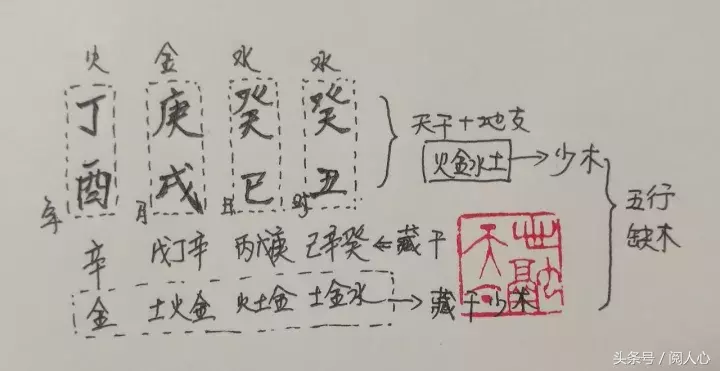 火 金 水 水
丁 庚 癸 癸
天干+地支
火金水土→少木
酉 戌 巳 丑
年 月 日 时
五行
缺木
辛 戊丁辛 丙戊庚 己辛癸 ←藏干
金 土火金 火土金 土金水 →藏干少木
头条号 / 阅人心